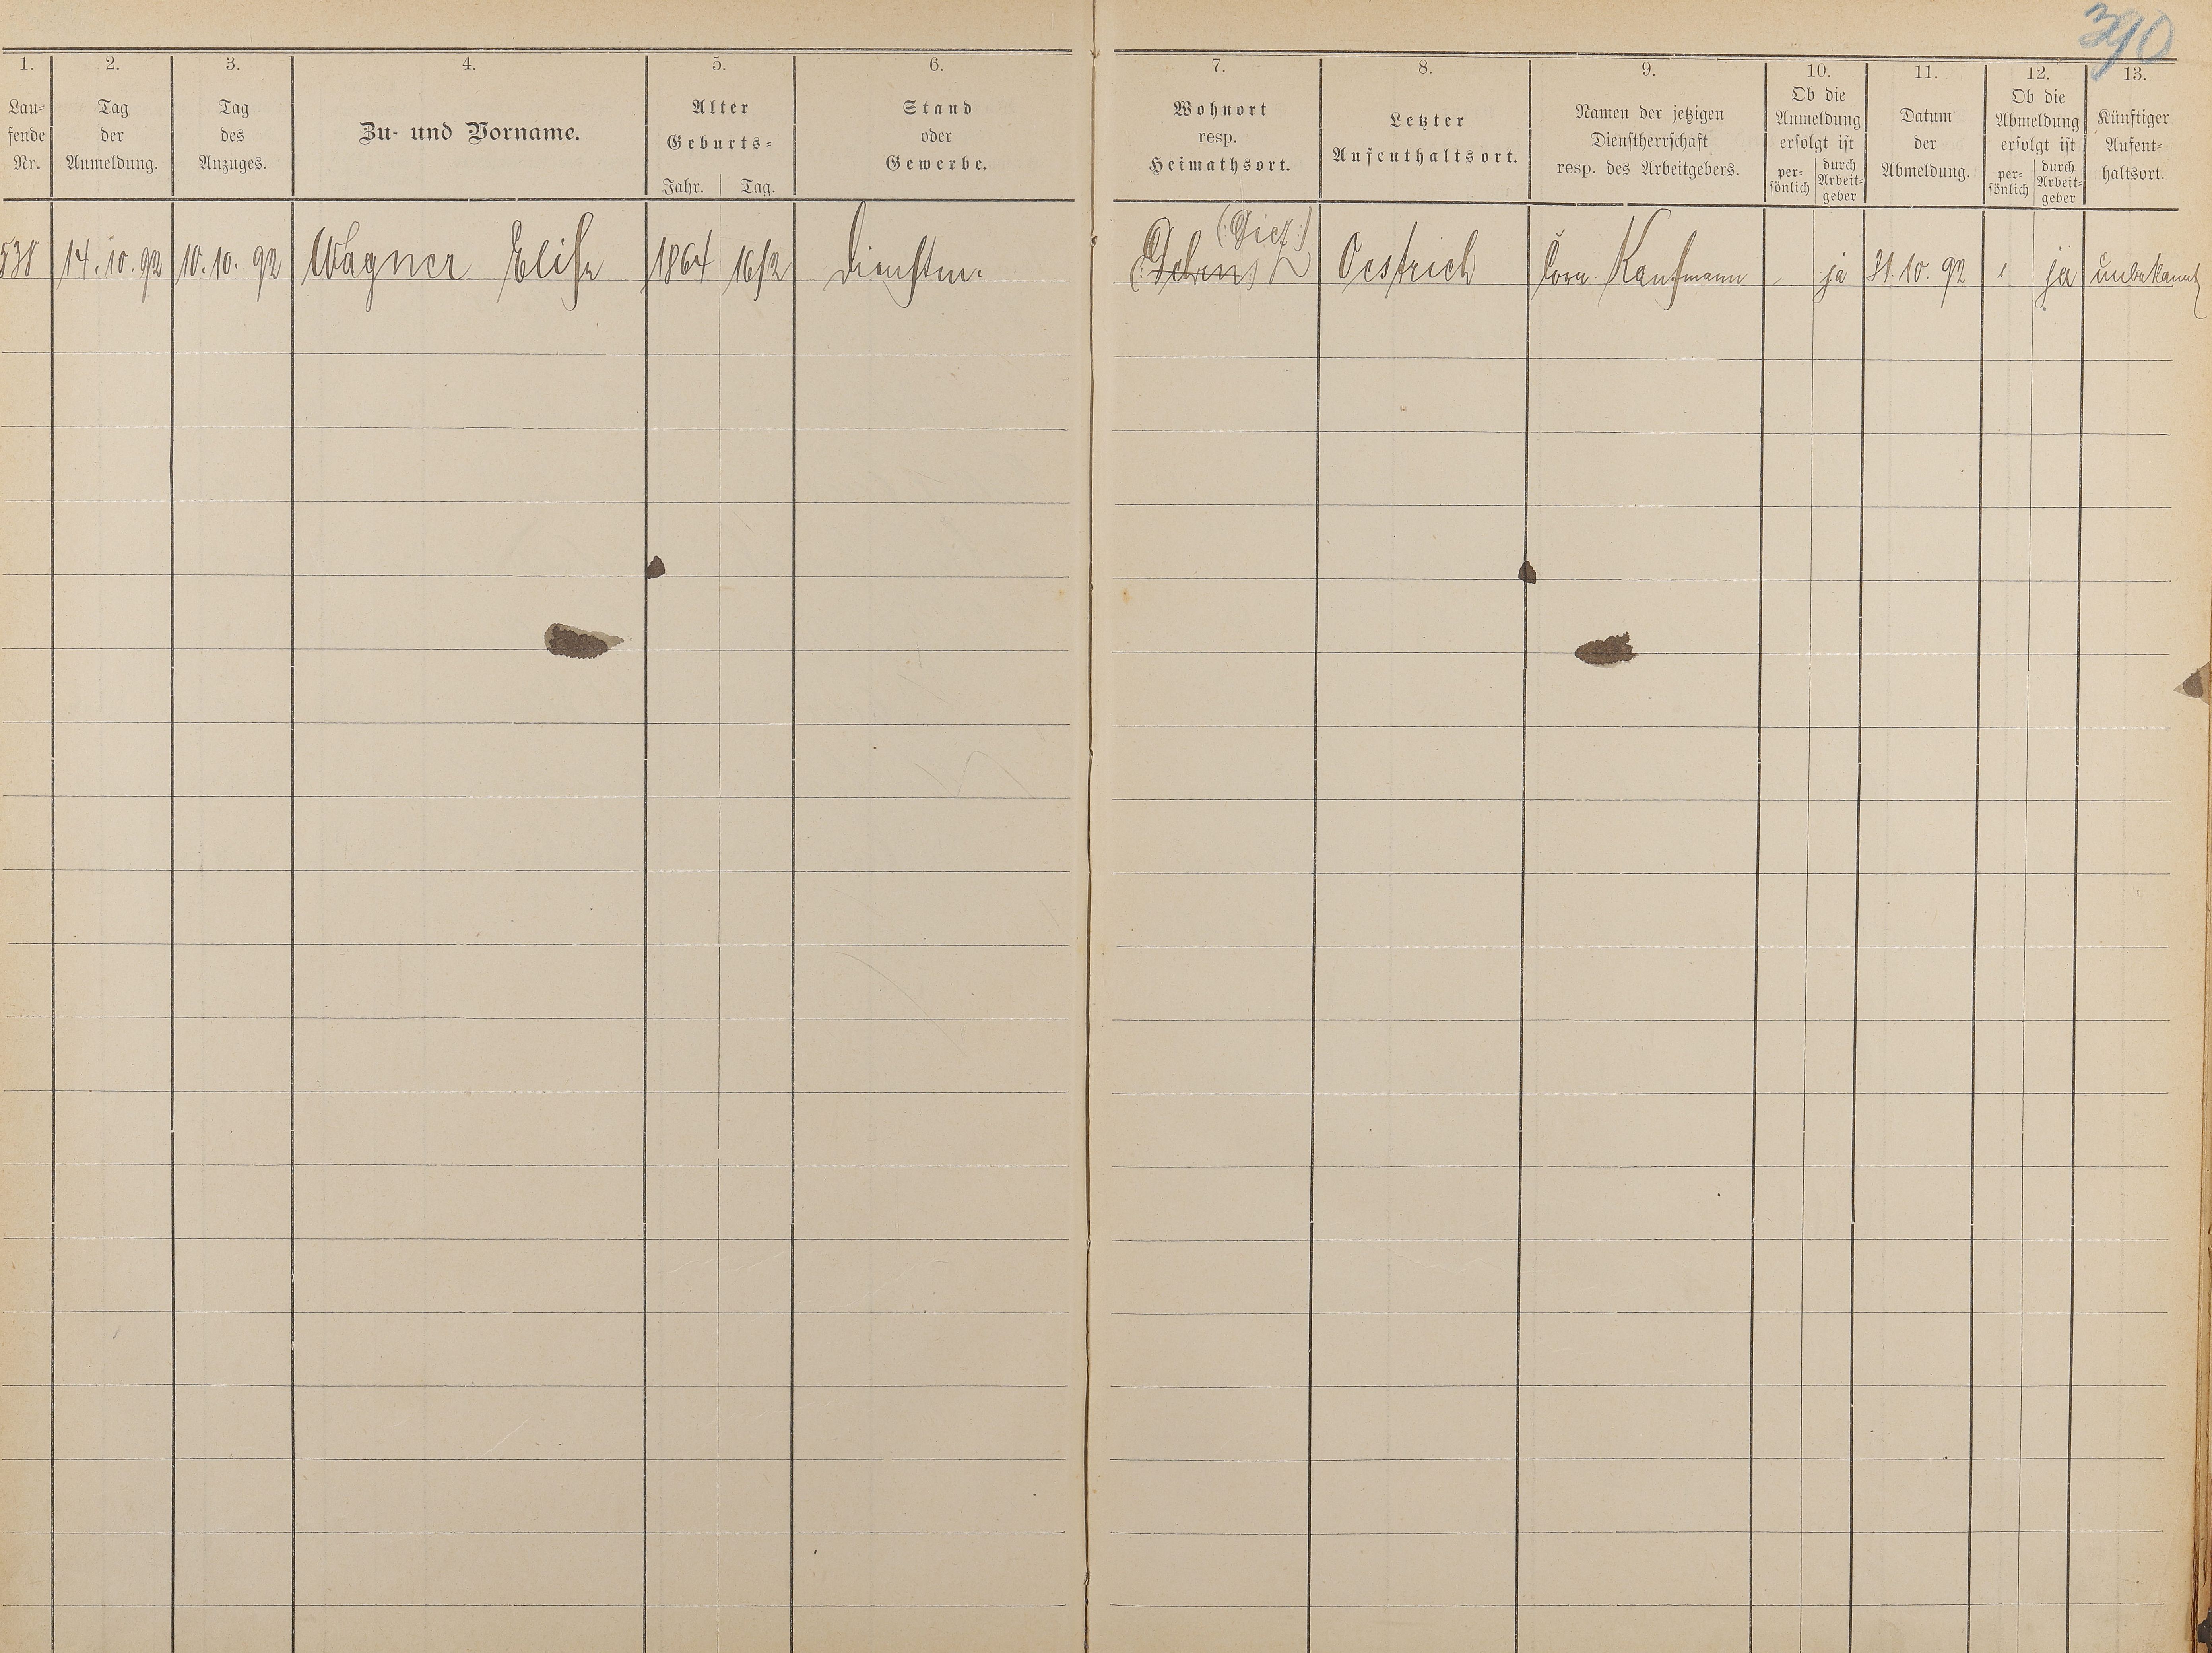 390
1. 2. 3. 4. 5. 6. 7. 8. 9. 10. 11. 12. 13.
Lau-
fende
Nr.
Tag
der
Anmeldung.
Tag
des
Anzuges.
Zu- und Vorname.
Alter
Geburts-
Jahr. Tag.
Stand
oder
Gewerbe.
Wohnort
resp.
Heimathsort.
Letzter
Aufenthaltsort.
Namen der jetzigen
Dienstherrschaft
resp. des Arbeitgebers.
Ob die
Anmeldung
erfolgt ist
per-
sönlich
durch
Arbeit-
geber
Datum
der
Abmeldung.
Ob die
Abmeldung
erfolgt ist
per-
sönlich
durch
Arbeit-
geber
Künftiger
Aufent-
haltsort.
(:Diez:)
538 14.10.92 10.10.92 Wagner Elise 1864 16/2 Dienstm. Oestrich Kaufmann - ja 31.10.92 ja unbekannt